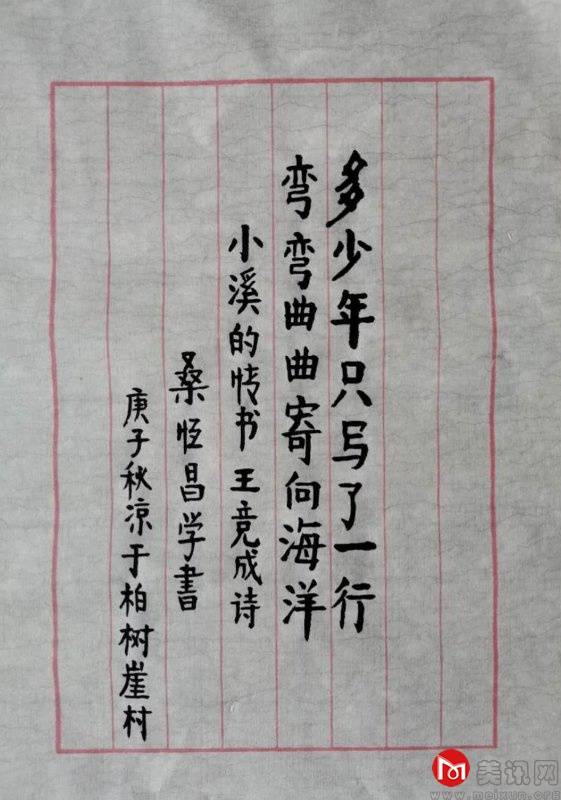 多少年只写了一行
弯弯曲曲寄向海洋
小溪的情书 王竞成诗
桑恒昌学書
庚子秋凉于柏树崖村
美讯网
www.meixun.org